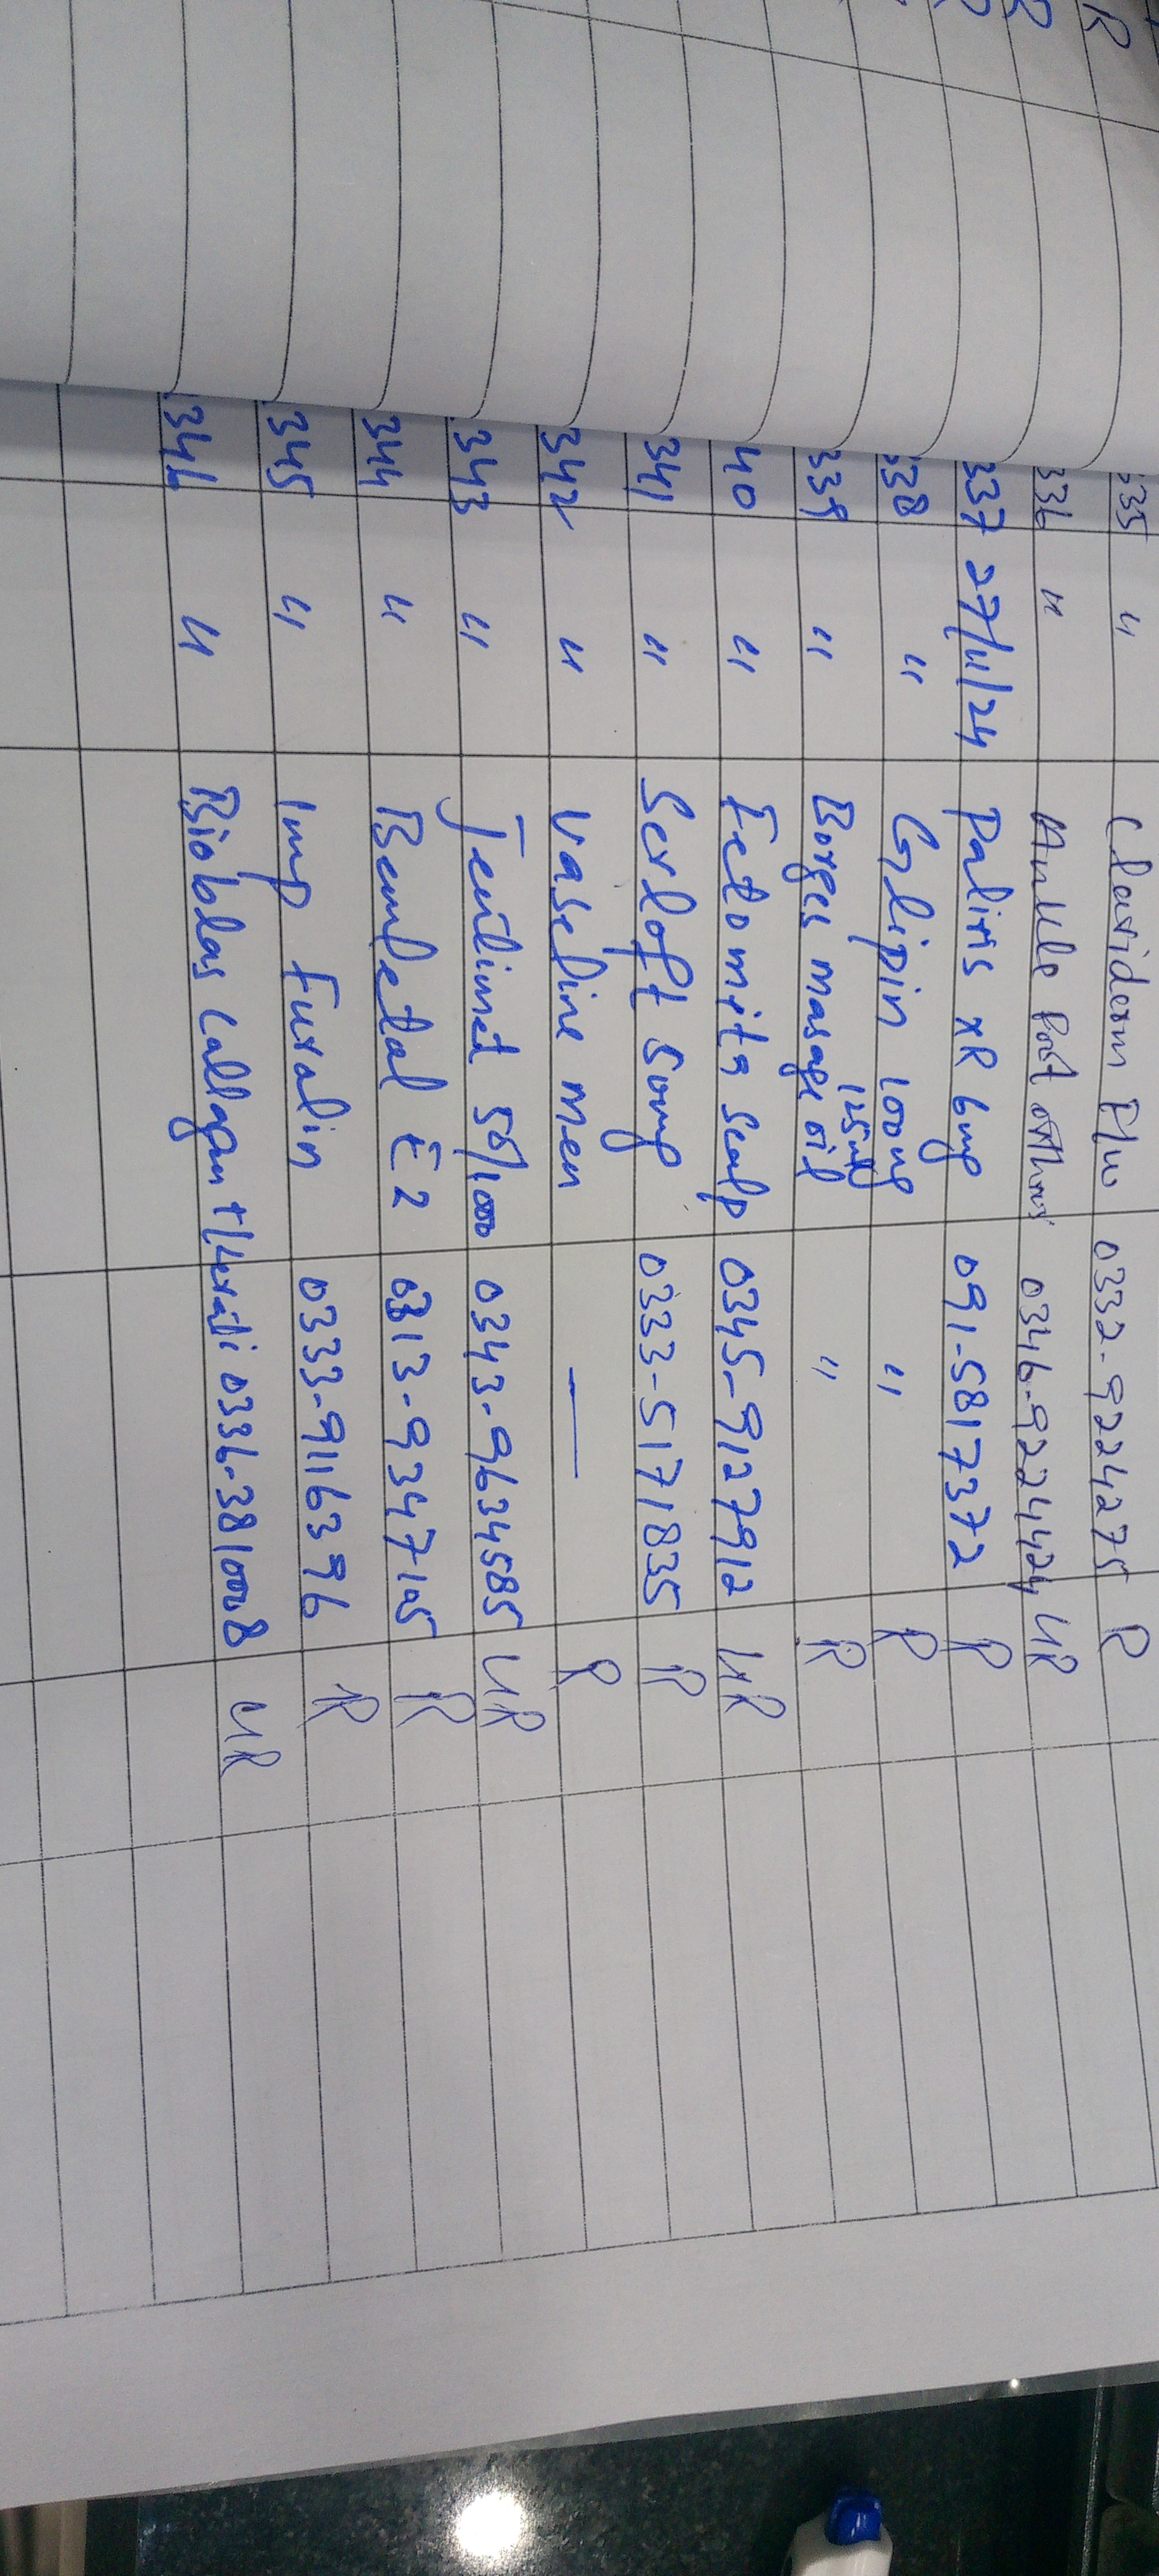 R R R
335 " Clariderm Plus 0332-9224275 R
336 " Ankle Post 0346-9224424 UR
337 27/11/24 Palins XR 6mg 091-5817372 R
338 " Glipin 100mg " R
339 " Borges masage oil 125ml " R
340 " Fetomits scalp 0345-9127912 UR
341 " Serloft 50mg 0333-5171835 R
342 " Vaseline men — R
343 " 50/1000 0343-9634585 UR
344 " E2 0313-9347105 R
345 " Imp Furalin 0333-9116396 R
346 " Collagen + 0336-3810008 UR